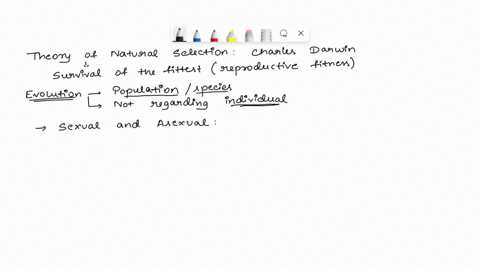 Theory of Natural Selection : Charles Darwin
Survival of the fittest (reproductive fitness)
Evolution → Population / species
→ Not regarding individual
→ Sexual and Asexual :